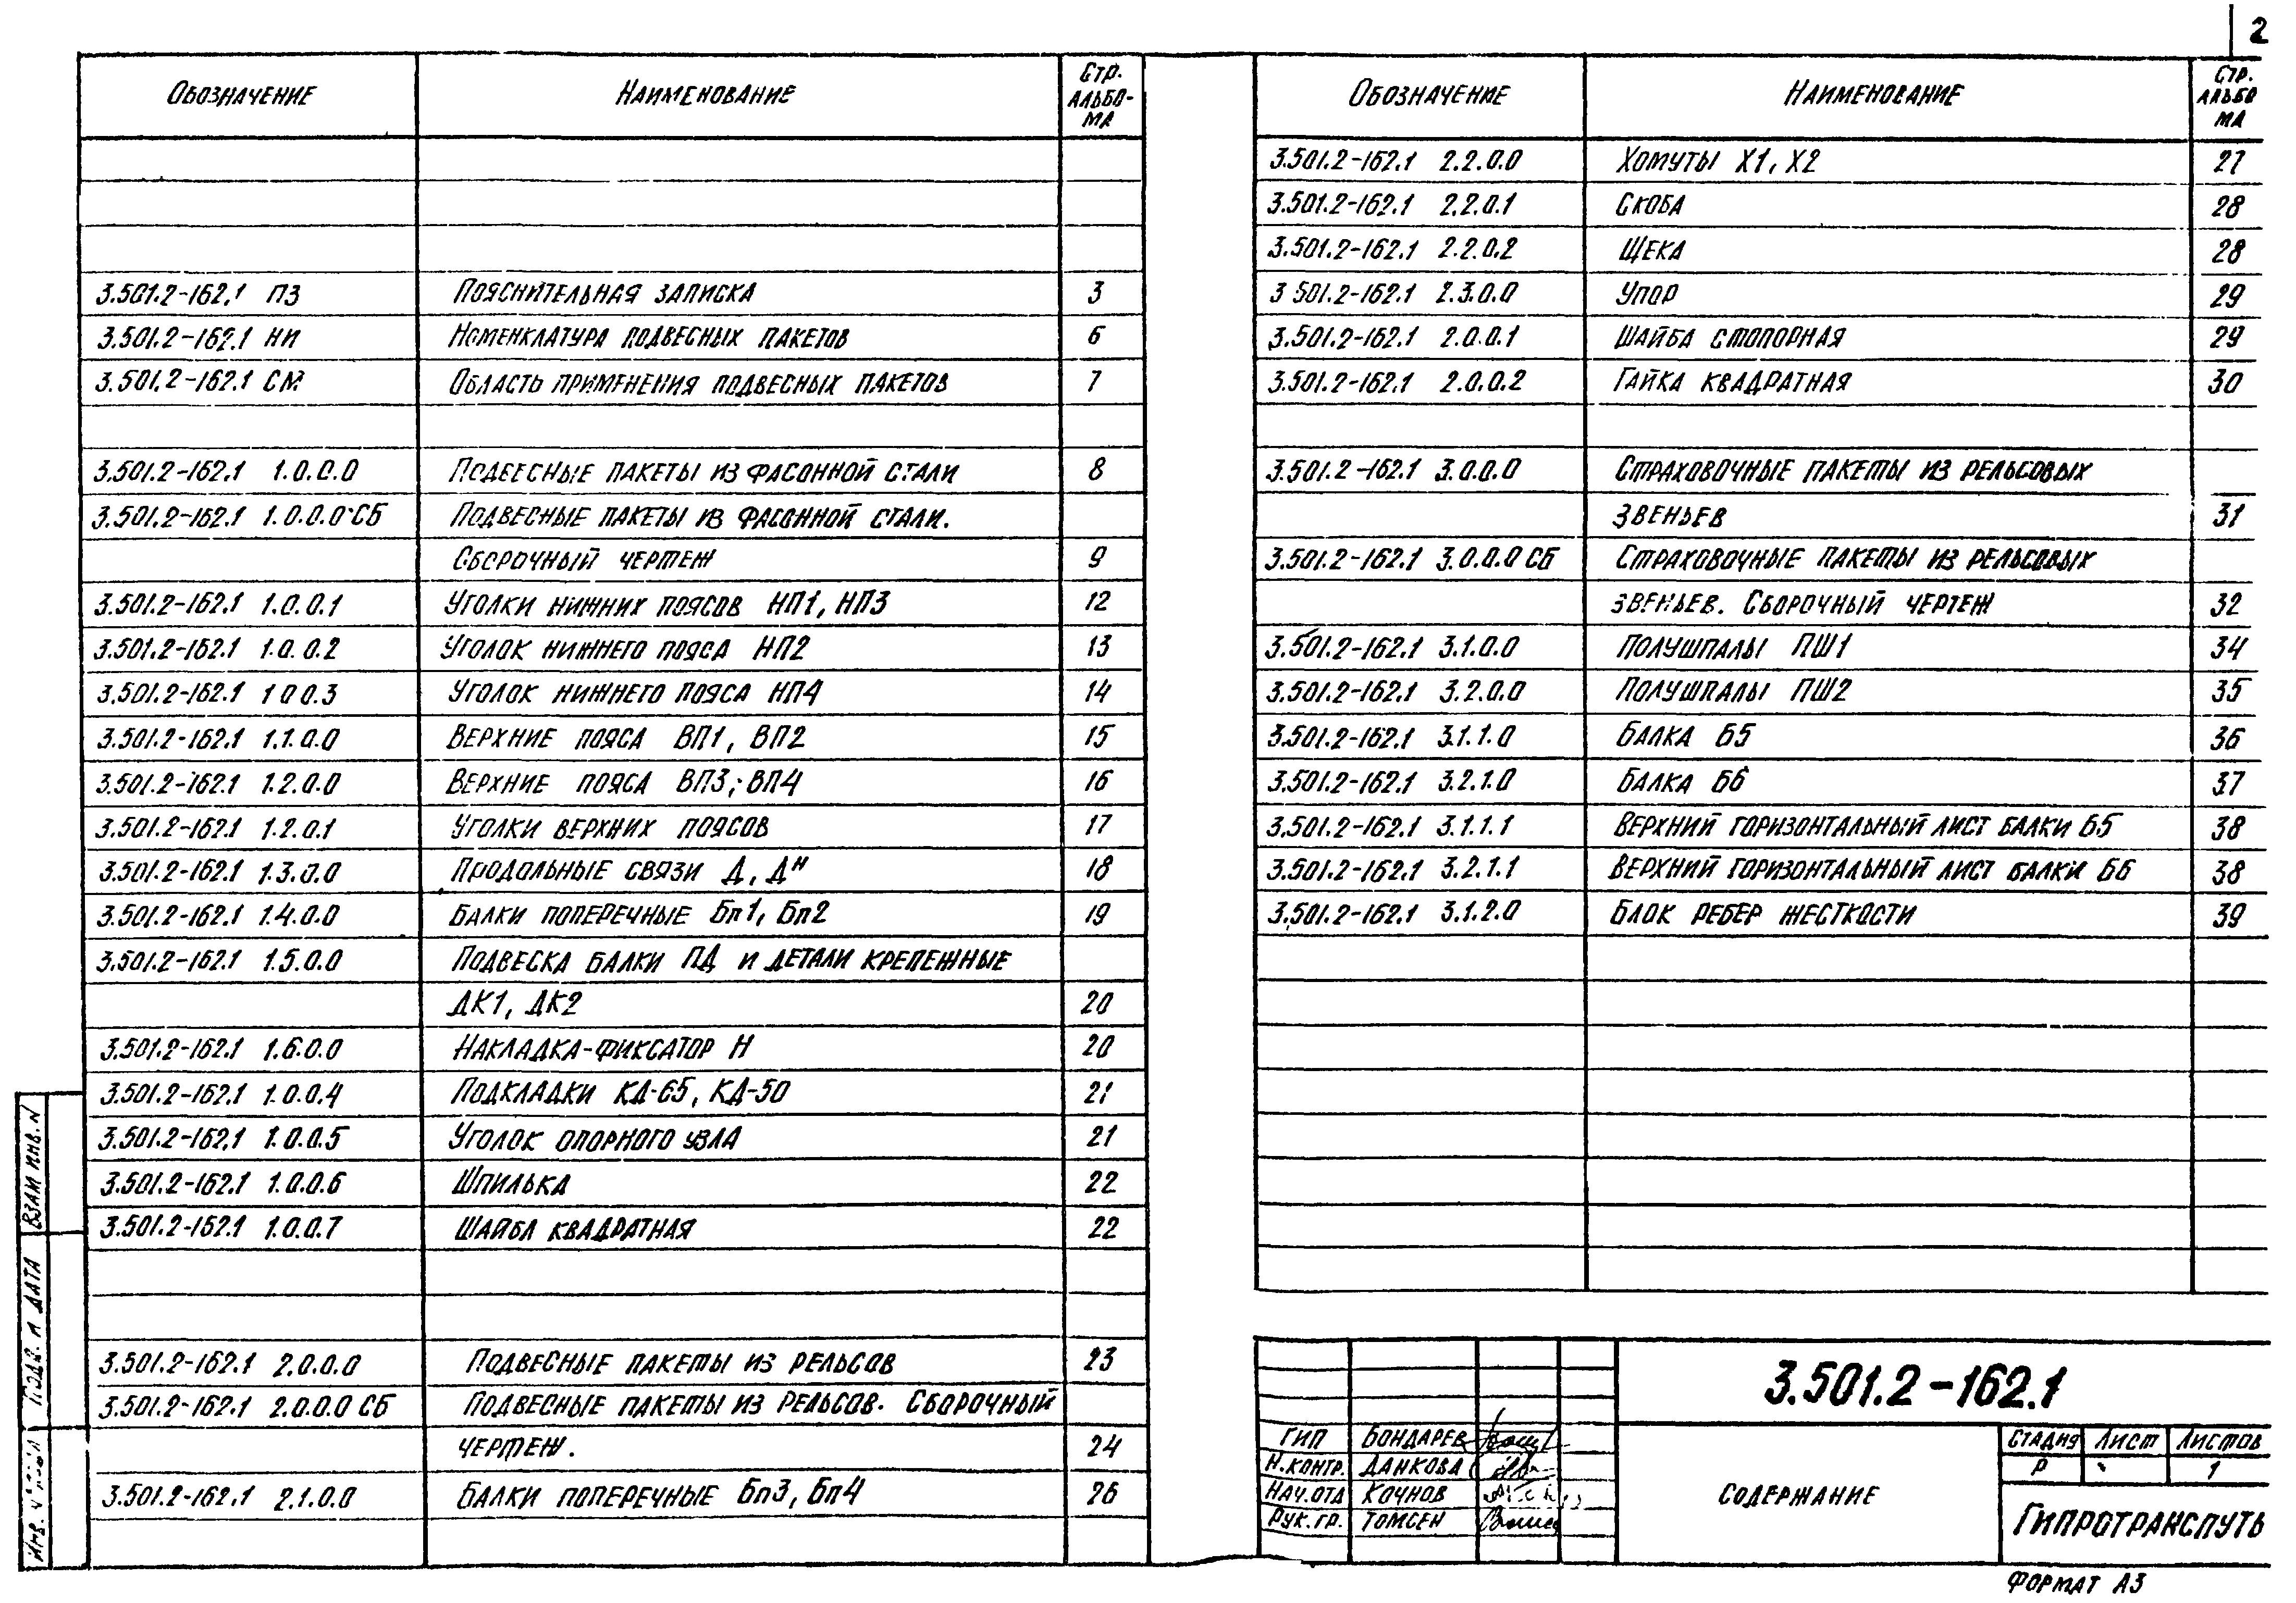 2
Обозначение Наименование Стр. альбо-ма
3.501.2-162.1 ПЗ Пояснительная записка 3
3.501.2-162.1 НИ Номенклатура подвесных пакетов 6
3.501.2-162.1 СМ Область применения подвесных пакетов 7
3.501.2-162.1 1.0.0.0 Подвесные пакеты из фасонной стали 8
3.501.2-162.1 1.0.0.0 СБ Подвесные пакеты из фасонной стали.
Сборочный чертеж 9
3.501.2-162.1 1.0.0.1 Уголки нижних поясов НП1, НП3 12
3.501.2-162.1 1.0.0.2 Уголок нижнего пояса НП2 13
3.501.2-162.1 1.0.0.3 Уголок нижнего пояса НП4 14
3.501.2-162.1 1.1.0.0 Верхние пояса ВП1, ВП2 15
3.501.2-162.1 1.2.0.0 Верхние пояса ВП3; ВП4 16
3.501.2-162.1 1.2.0.1 Уголки верхних поясов 17
3.501.2-162.1 1.3.0.0 Продольные связи Д, Дн 18
3.501.2-162.1 1.4.0.0 Балки поперечные Бп1, Бп2 19
3.501.2-162.1 1.5.0.0 Подвеска балки ПД и детали крепежные
ДК1, ДК2 20
3.501.2-162.1 1.6.0.0 Накладка-фиксатор Н 20
3.501.2-162.1 1.0.0.4 Подкладки КД-65, КД-50 21
3.501.2-162.1 1.0.0.5 Уголок опорного узла 21
3.501.2-162.1 1.0.0.6 Шпилька 22
3.501.2-162.1 1.0.0.7 Шайба квадратная 22
3.501.2-162.1 2.0.0.0 Подвесные пакеты из рельсов 23
3.501.2-162.1 2.0.0.0 СБ Подвесные пакеты из рельсов. Сборочный
чертеж. 24
3.501.2-162.1 2.1.0.0 Балки поперечные Бп3, Бп4 26
Обозначение Наименование Стр. альбо ма
3.501.2-162.1 2.2.0.0 Хомуты Х1, Х2 27
3.501.2-162.1 2.2.0.1 Скоба 28
3.501.2-162.1 2.2.0.2 Щека 28
3 501.2-162.1 2.3.0.0 Упор 29
3.501.2-162.1 2.0.0.1 Шайба стопорная 29
3.501.2-162.1 2.0.0.2 Гайка квадратная 30
3.501.2-162.1 3.0.0.0 Страховочные пакеты из рельсовых
звеньев 31
3.501.2-162.1 3.0.0.0 СБ Страховочные пакеты из рельсовых
звеньев. Сборочный чертеж 32
3.501.2-162.1 3.1.0.0 Полушпалы ПШ1 34
3.501.2-162.1 3.2.0.0 Полушпалы ПШ2 35
3.501.2-162.1 3.1.1.0 Балка Б5 36
3.501.2-162.1 3.2.1.0 Балка Б6 37
3.501.2-162.1 3.1.1.1 Верхний горизонтальный лист балки Б5 38
3.501.2-162.1 3.2.1.1 Верхний горизонтальный лист балки Б6 38
3.501.2-162.1 3.1.2.0 Блок ребер жесткости 39
Взам инв. N
Подп. и дата
3.501.2-162.1
ГИП Бондарев
Н.контр. Данкова
Нач.отд Кочнов
Рук.гр. Томсен
Содержание
Стадия Лист Листов
Р 1
Гипротранспуть
Формат А3